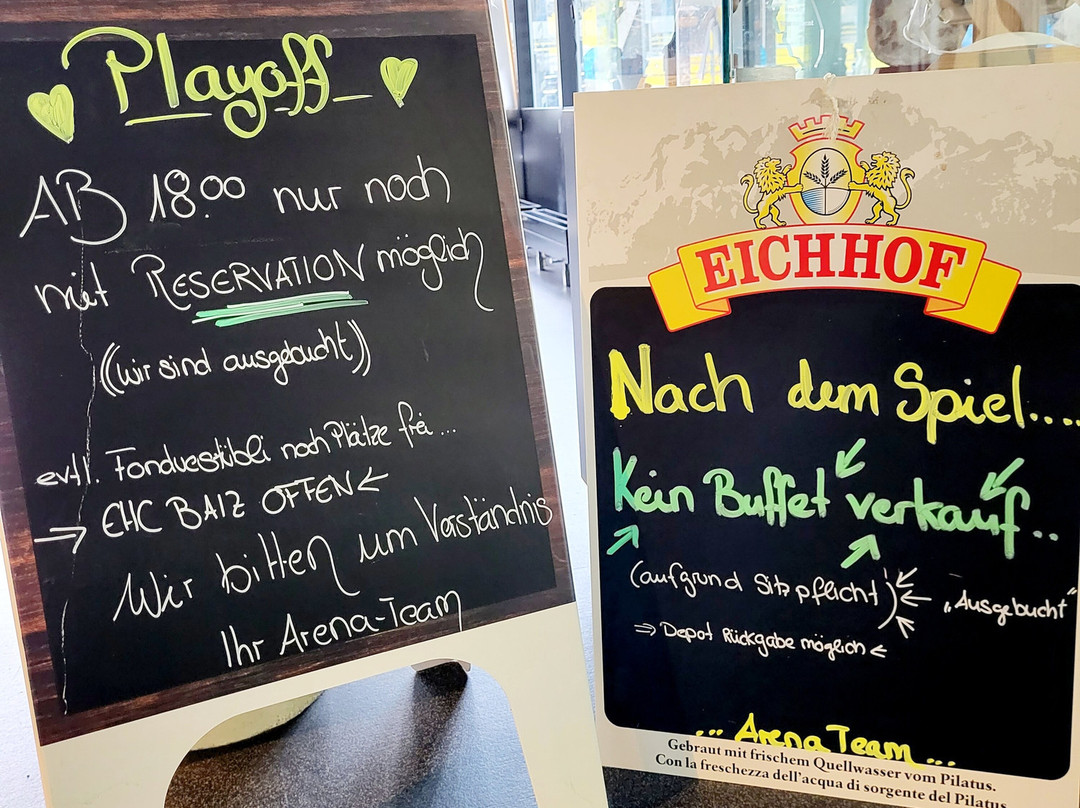 Playoff
AB 18.00 nur noch
mit RESERVATION möglich
((wir sind ausgebucht))
evtl. Fonduestübli noch Plätze frei...
→ EHC BAIZ OFFEN ←
Wir bitten um Verständnis
Ihr Arena-Team
EICHHOF
Nach dem Spiel....
Kein Buffet verkauf..
(aufgrund Sitzpflicht) ← „Ausgebucht"
⇒ Depot Rückgabe möglich ⇐
... Arena Team ...
Gebraut mit frischem Quellwasser vom Pilatus.
Con la freschezza dell'acqua di sorgente del Pilatus